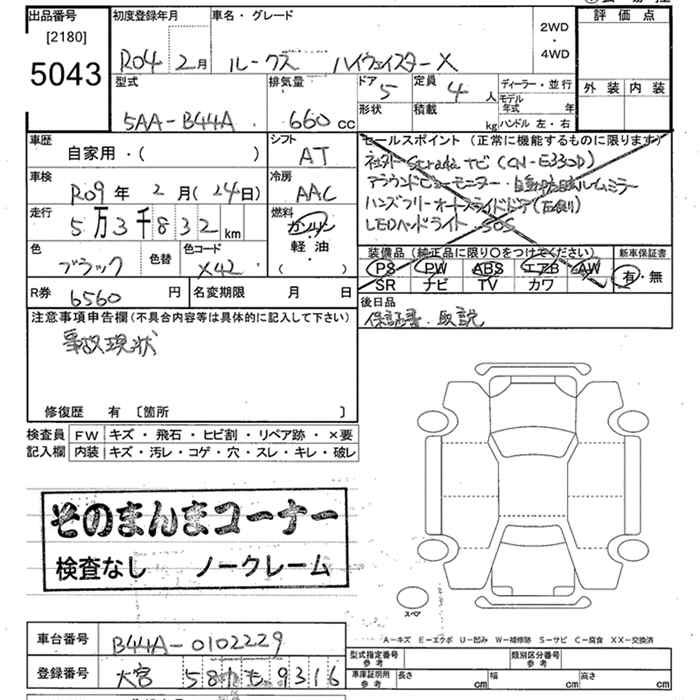 出品番号 初度登録年月 車名・グレード 評価点
[2180]
5043
R04 2月 ルークス ハイウェイスターX
2WD
・
4WD
外装 内装
型式 排気量 ドア 定員 ディーラー・並行
5AA-B44A 660cc 5 4人
形状 積載 kg モデル年式 年
ハンドル 左・右
車歴 シフト セールスポイント (正常に機能するものに限ります)
自家用・( ) AT
車検 冷房 アラウンドビューモニター・
R09年 2月(24日) AAC ハンズフリーオートスライドドア
走行 燃料 LEDヘッドライト・SOS
5万3千832km ガソリン
軽油
( )
色 色替 色コード
ブラック X42
装備品 (純正品に限り○をつけてください) 新車保証書
PS PW ABS エアB AW 有・無
SR ナビ TV カワ
R券 6560円 名変期限 月 日 後日品
保証書・取説
注意事項申告欄(不具合内容等は具体的に記入して下さい)
事故現状
修復歴 有 〔箇所 〕
検査員 FW キズ・飛石・ヒビ割・リペア跡・×要
記入欄 内装 キズ・汚レ・コゲ・穴・スレ・キレ・破レ
そのまんまコーナー
検査なし ノークレーム
スペア
A-キズ E-エクボ U-凹み W-補修跡 S-サビ C-腐食 XX-交換済
車台番号 B44A-0102229
型式指定番号 参考 類別区分番号 参考
登録番号 大宮 581 も 9316
車庫証明所 参考 長さ cm 幅 cm 高さ cm